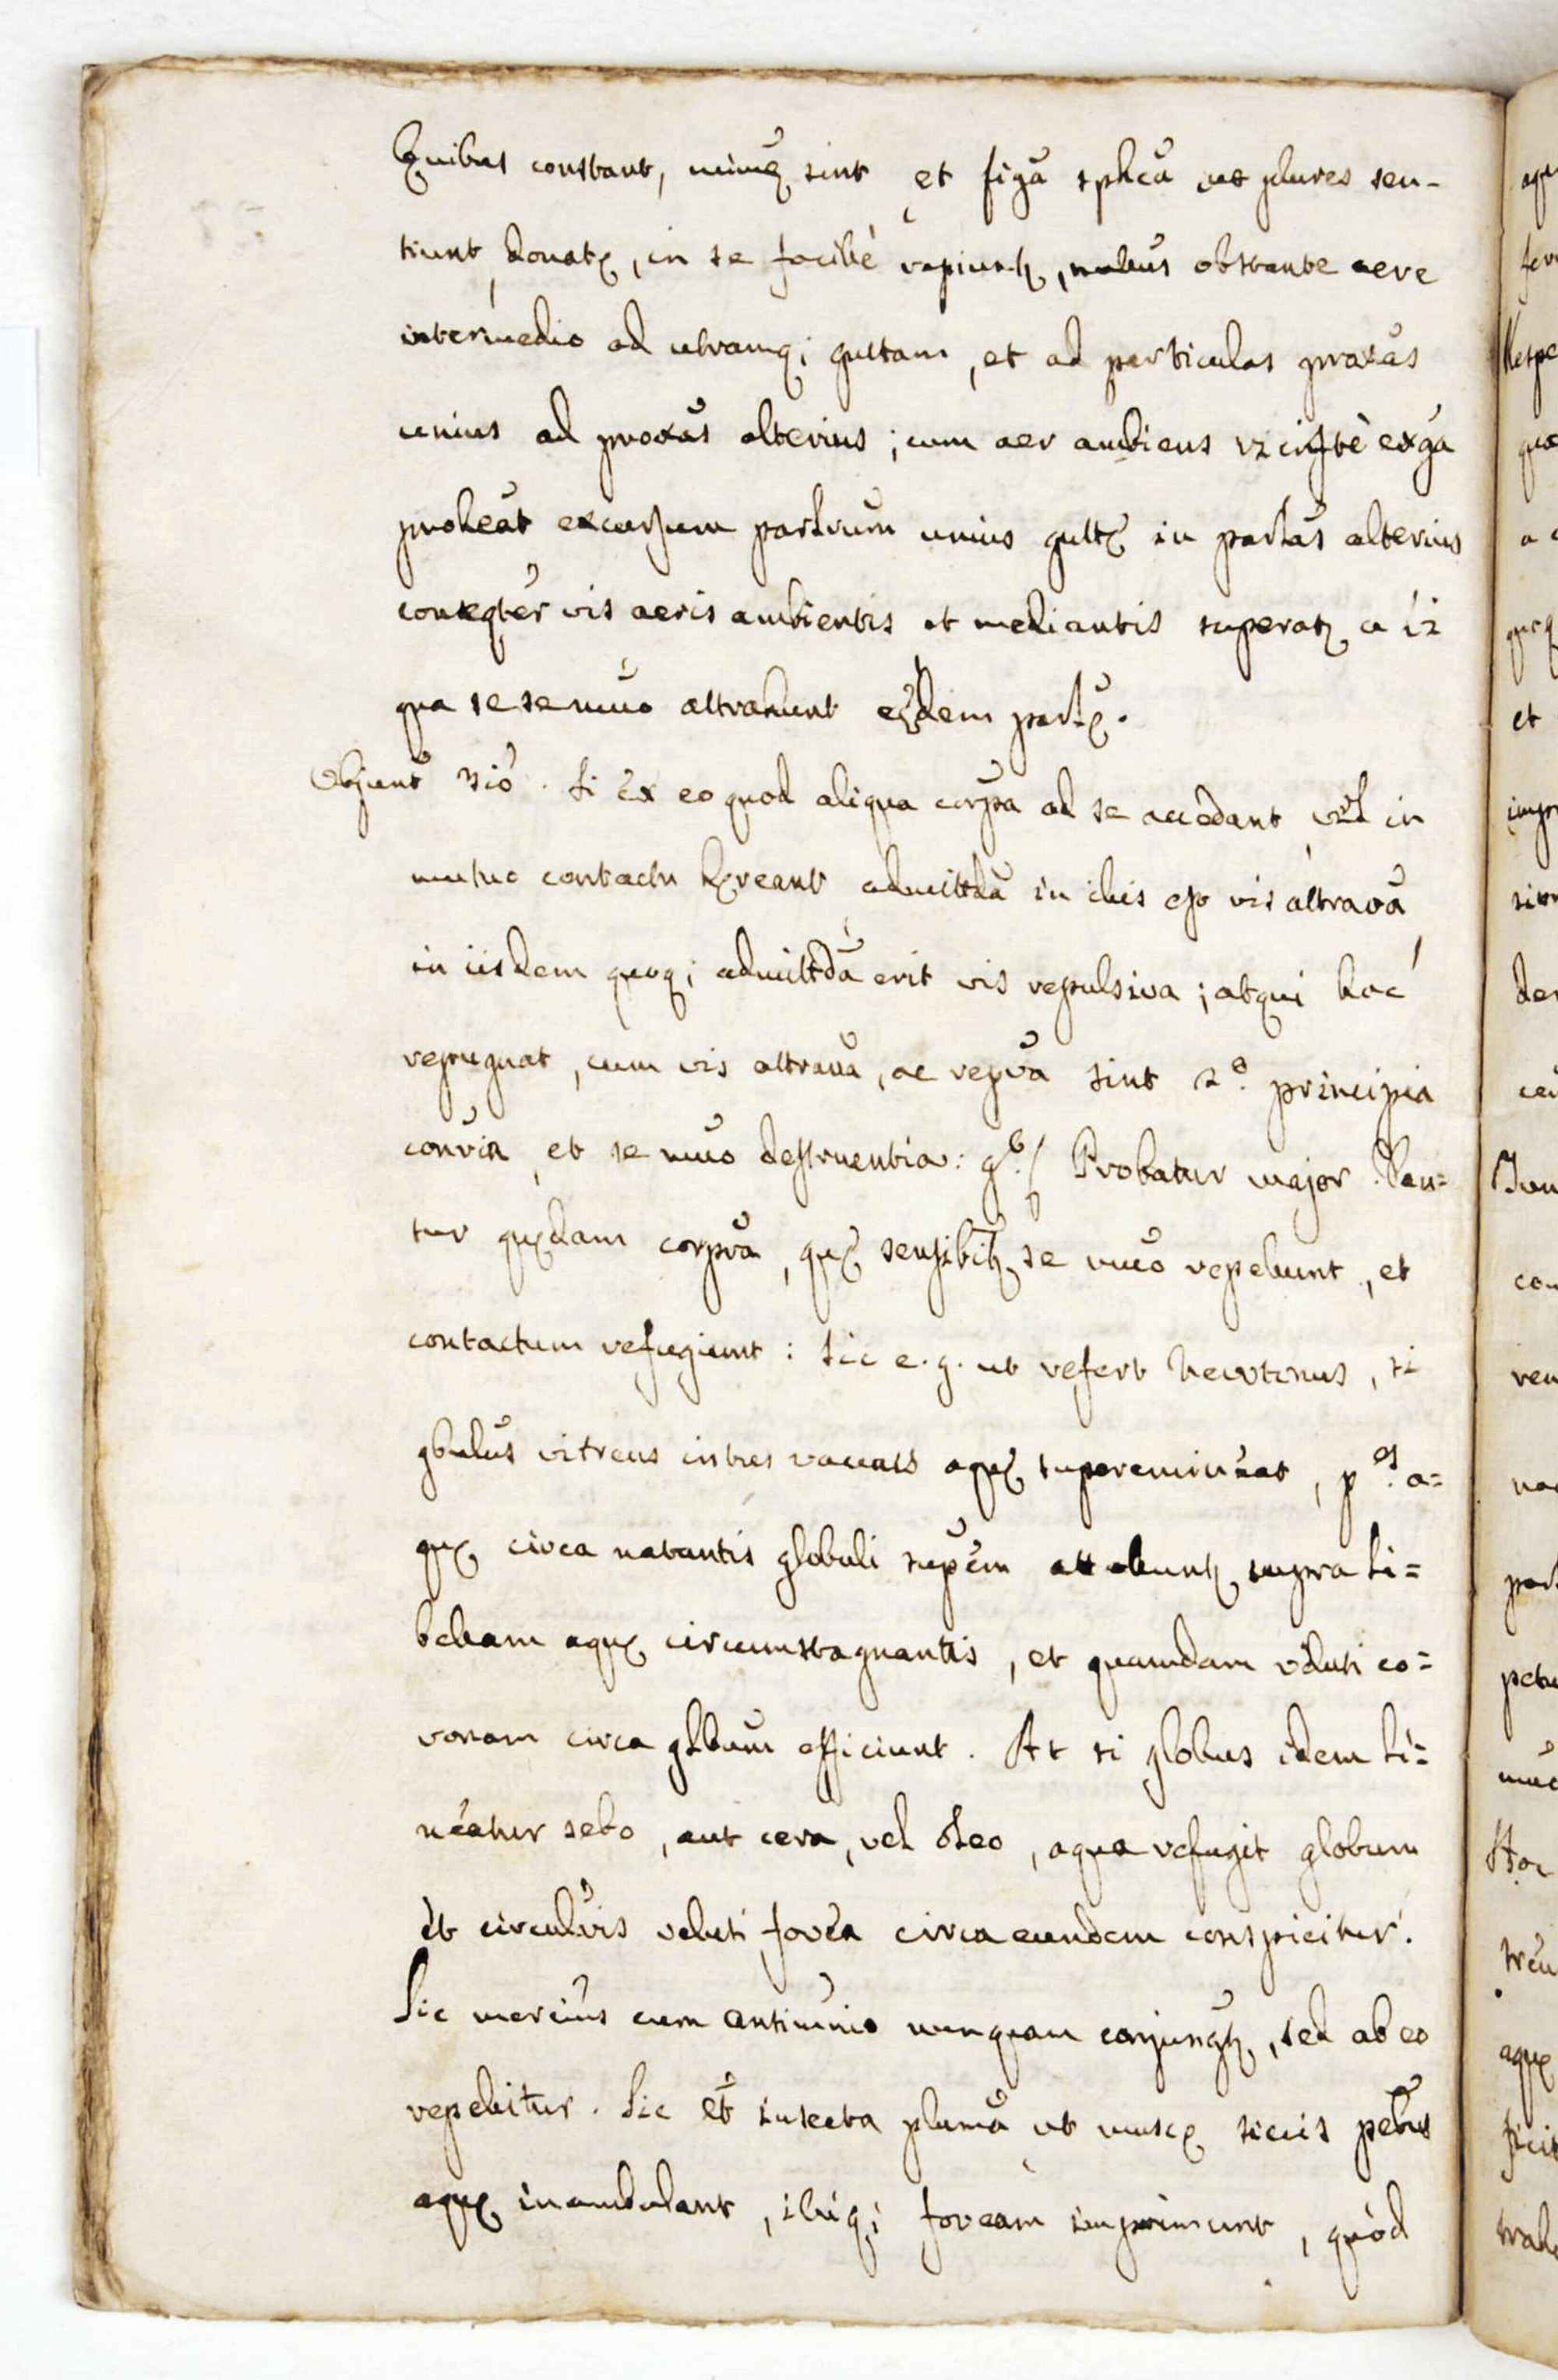 Quibus constant, minuę sint et figā sphcā ut plures sen-
tiunt, donatę, in se facilè rapiuntʒ, nullius obstante aere
intermedio ad utramq; guttam, et ad particulas proxās
unius ad proxās alterius; cum aer ambiens exga
proheāt excursum partium unius guttę in partās alterius
conseqter vis aeris ambientis et mediantis superatʒ a
qua se se muo attrahunt eędem partę.
Objiunt 3io. Si ex eo quod aliqua corpa ad se accedant, vel in
mutuo contactu hęreant admittda in illis esse vis attrava,
in iisdem quoq; admittda erit vis repulsiva; atqui hoc
repugnat, cum vis attrava, ac repva sint 2o. principia
convia, et se muo destruentia: go. / Probatur major. Dan=
tur quędam corpra, quę sensibilʒ se muo repelunt, et
contactum refugiunt: Sic e. g. ut refert Newtonus, si
gbulus vitreus intus vacuus aquę superemineat, pes. a=
quę circa natantis globuli supem attolluntʒ supra li=
bellam aquę circumstagnantis, et quamdam veluti co=
ronam circa glbum efficiunt. At si globus idem li=
neatur sebo, aut cera, vel oleo, aqua refugit globum
et circulris veluti fovea circa eundem conspicitur.
Sic mercius cum antimnio nunquam conjungtʒ, sed ab eo
repelitur. Sic et insecta plurma ut muscę siccis pebus
aquę inambulant, illiq; foveam imprimunt, quod